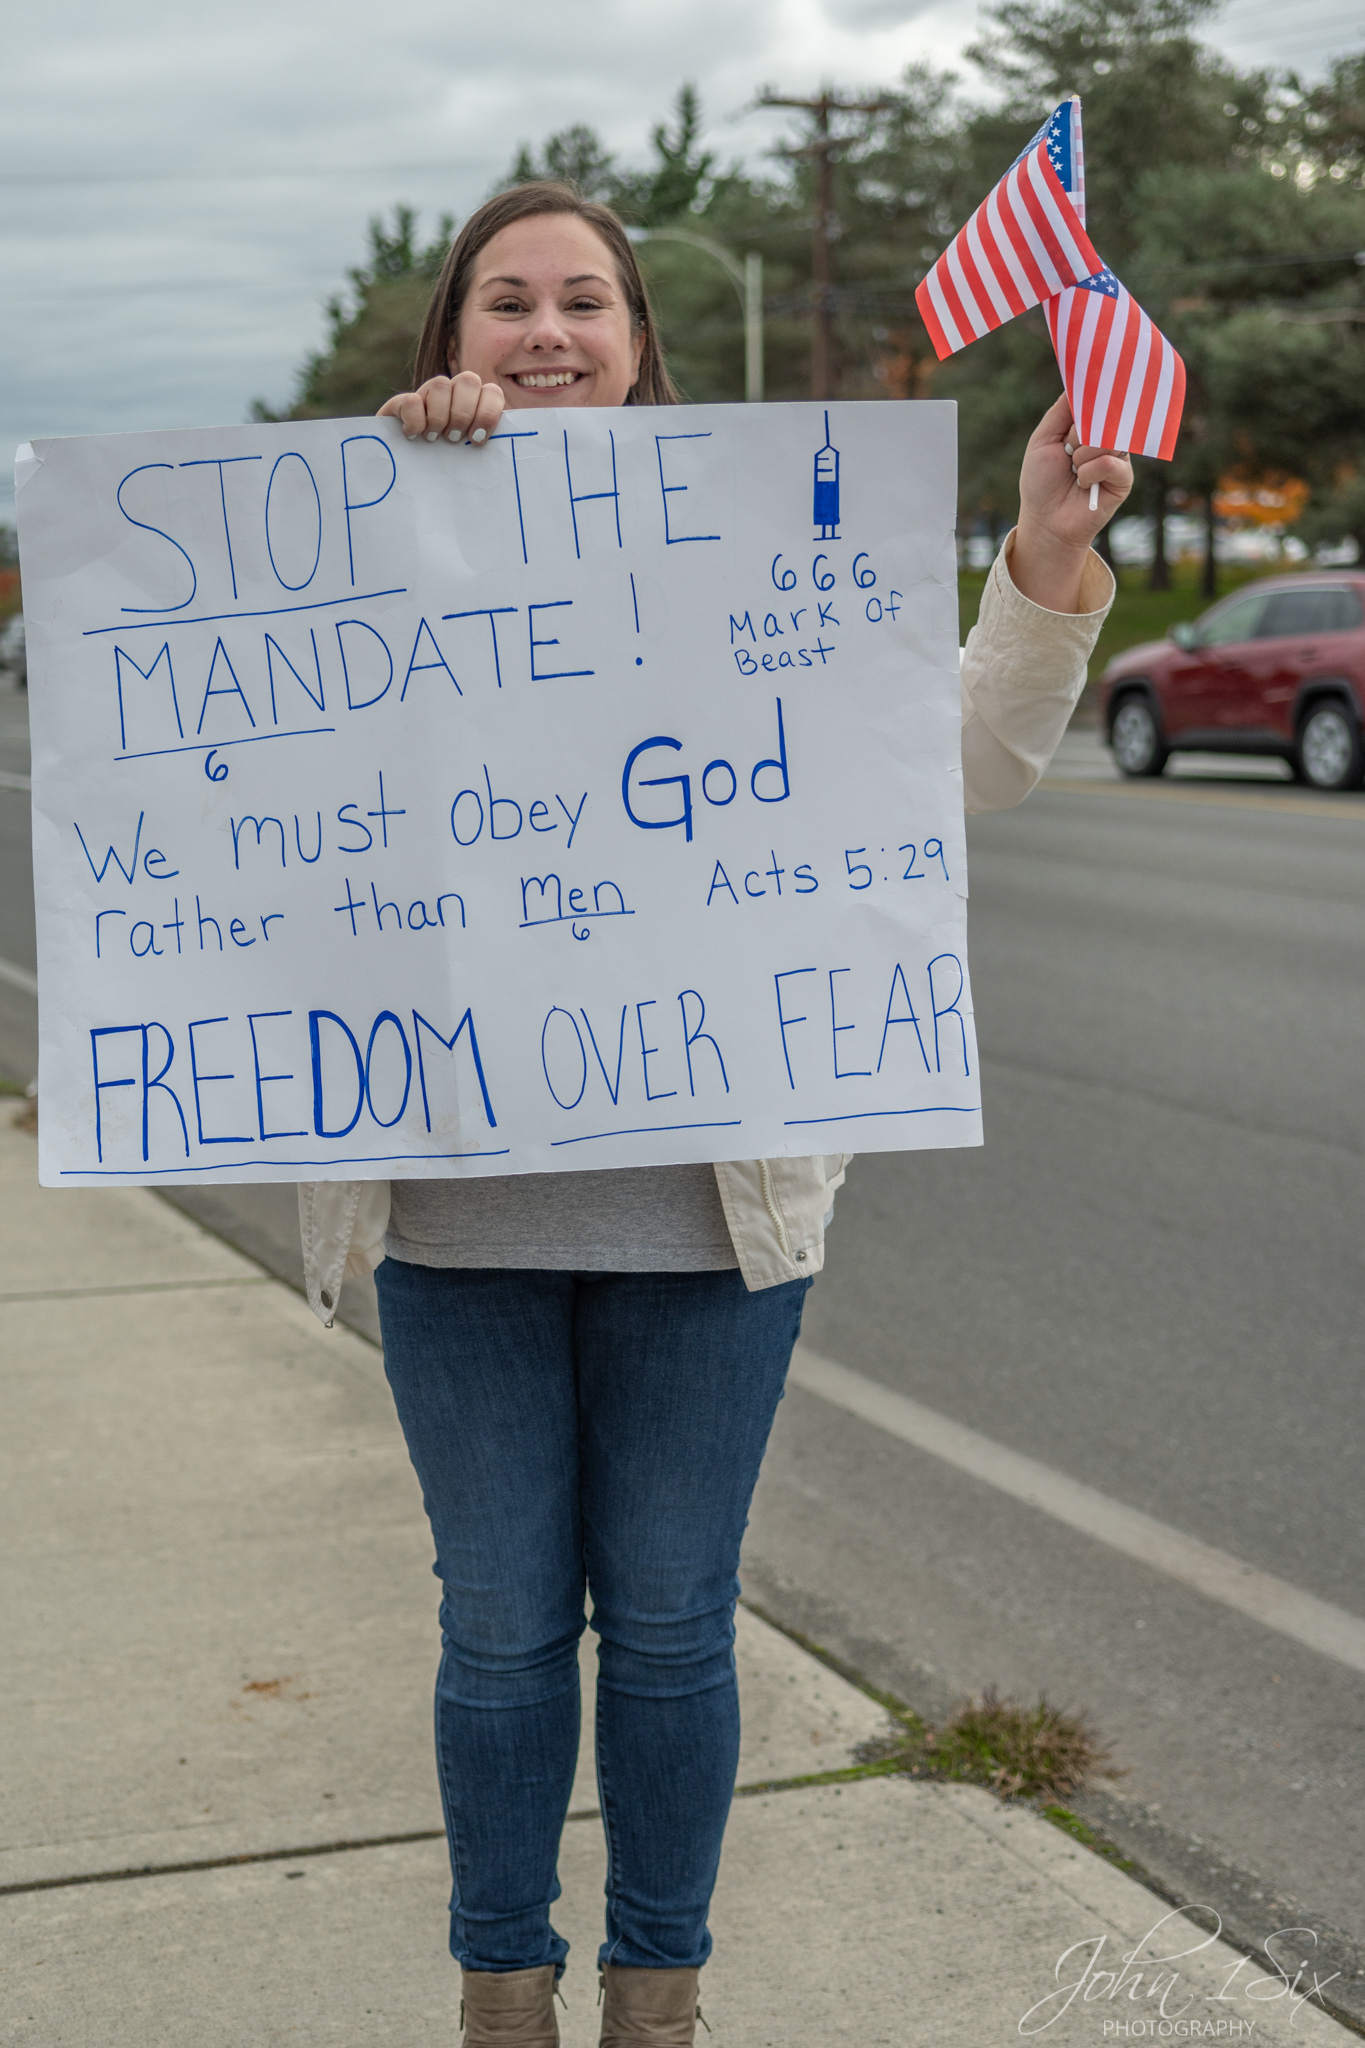 STOP THE
MANDATE!
6
666
Mark Of
Beast
We must obey God
rather than Men Acts 5:29
6
FREEDOM OVER FEAR
John 1Six
PHOTOGRAPHY